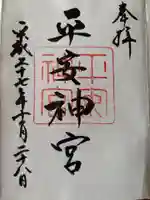 奉拝
平安神宮
平成二十七年十一月二十八日